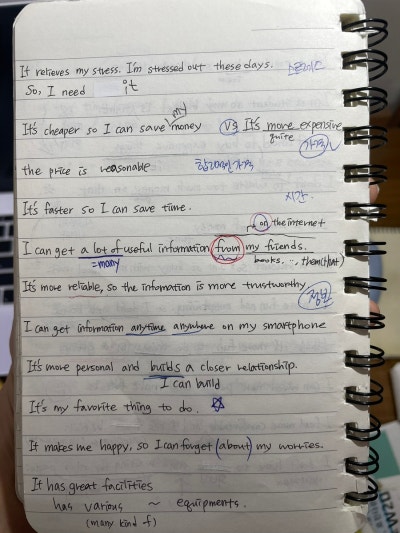 It relieves my stress. I'm stressed out these days. 스트레스
So, I need it
my
It's cheaper so I can save money VS It's more expensive
quite 가격
the price is reasonable 합리적인 가격
It's faster so I can save time. 시간
on the internet
I can get a lot of useful information from my friends.
=many books, .., them(that)
It's more reliable, so the infomation is more trustworthy 정보
I can get information anytime anywhere on my smartphone
It's more personal and builds a closer relationship.
I can build
It's my favorite thing to do. ☆
It makes me happy, so I can forget (about) my worries.
It has great facilities
has various ~ equipments.
(many kind of)
W20